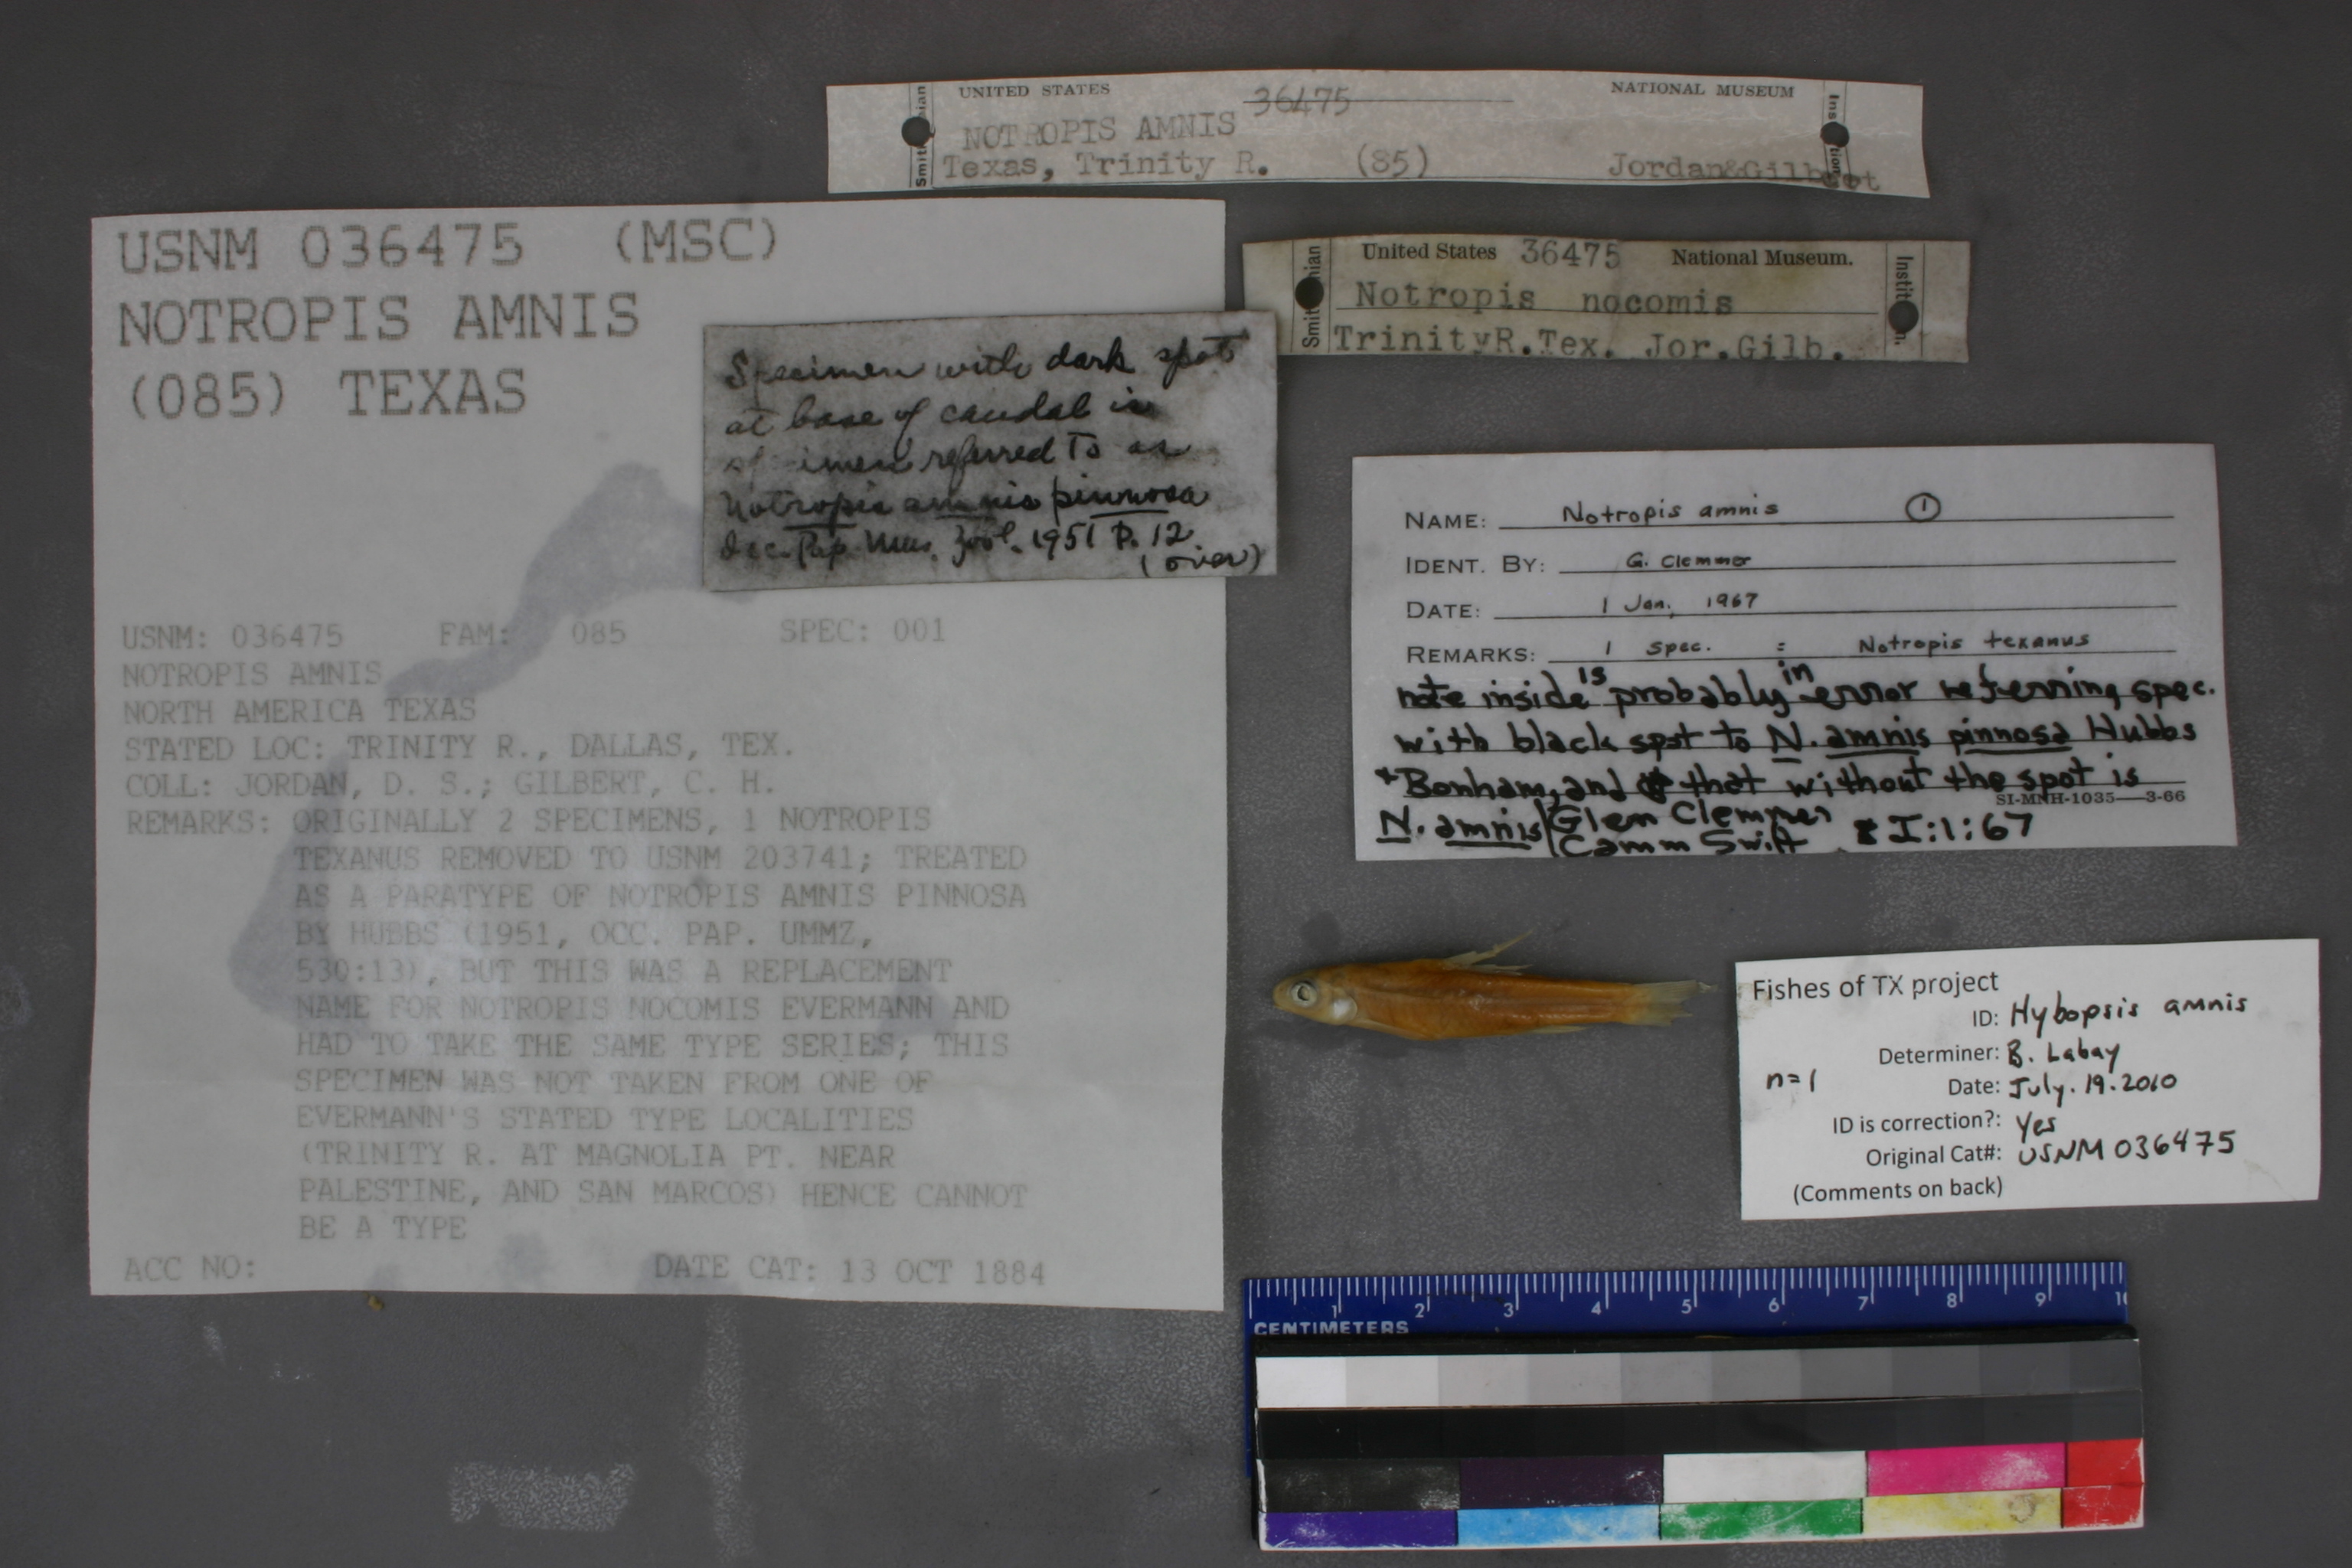 UNITED STATES 36475 NATIONAL MUSEUM
NOTROPIS AMNIS
Texas, Trinity R. (85) Jordan&Gilbert
United States 36475 National Museum.
Notropis nocomis
TrinityR.Tex. Jor.Gilb.
USNM 036475 (MSC)
NOTROPIS AMNIS
(085) TEXAS
USNM: 036475 FAM: 085 SPEC: 001
NOTROPIS AMNIS
NORTH AMERICA TEXAS
STATED LOC: TRINITY R., DALLAS, TEX.
COLL: JORDAN, D. S.; GILBERT, C. H.
REMARKS: ORIGINALLY 2 SPECIMENS, 1 NOTROPIS
TEXANUS REMOVED TO USNM 203741; TREATED
AS A PARATYPE OF NOTROPIS AMNIS PINNOSA
BY HUBBS (1951, OCC. PAP. UMMZ,
530:13), BUT THIS WAS A REPLACEMENT
NAME FOR NOTROPIS NOCOMIS EVERMANN AND
HAD TO TAKE THE SAME TYPE SERIES; THIS
SPECIMEN WAS NOT TAKEN FROM ONE OF
EVERMANN'S STATED TYPE LOCALITIES
(TRINITY R. AT MAGNOLIA PT. NEAR
PALESTINE, AND SAN MARCOS) HENCE CANNOT
BE A TYPE
ACC NO: DATE CAT: 13 OCT 1884
Specimen with dark spot
at base of caudal is
referred to as
Notropis amnis pinnosa
Occ. Pap. Mus. Zool. 1951 P. 12
(over)
NAME: Notropis amnis 1
IDENT. BY: G. Clemmer
DATE: 1 Jan, 1967
REMARKS: 1 spec. = Notropis texanus
note inside is probably in error referring spec.
with black spot to N. amnis pinnosa Hubbs
+ Bonham, and that without the spot is
SI-MNH-1035—3-66
N. amnis Glen Clemmer I:1:67
Camm Swift
Fishes of TX project
ID: Hybopsis amnis
Determiner: B. Labay
n=1 Date: July. 19. 2010
ID is correction?: Yes
Original Cat#: USNM 036475
(Comments on back)
1 2 3 4 5 6 7 8 9 10
CENTIMETERS